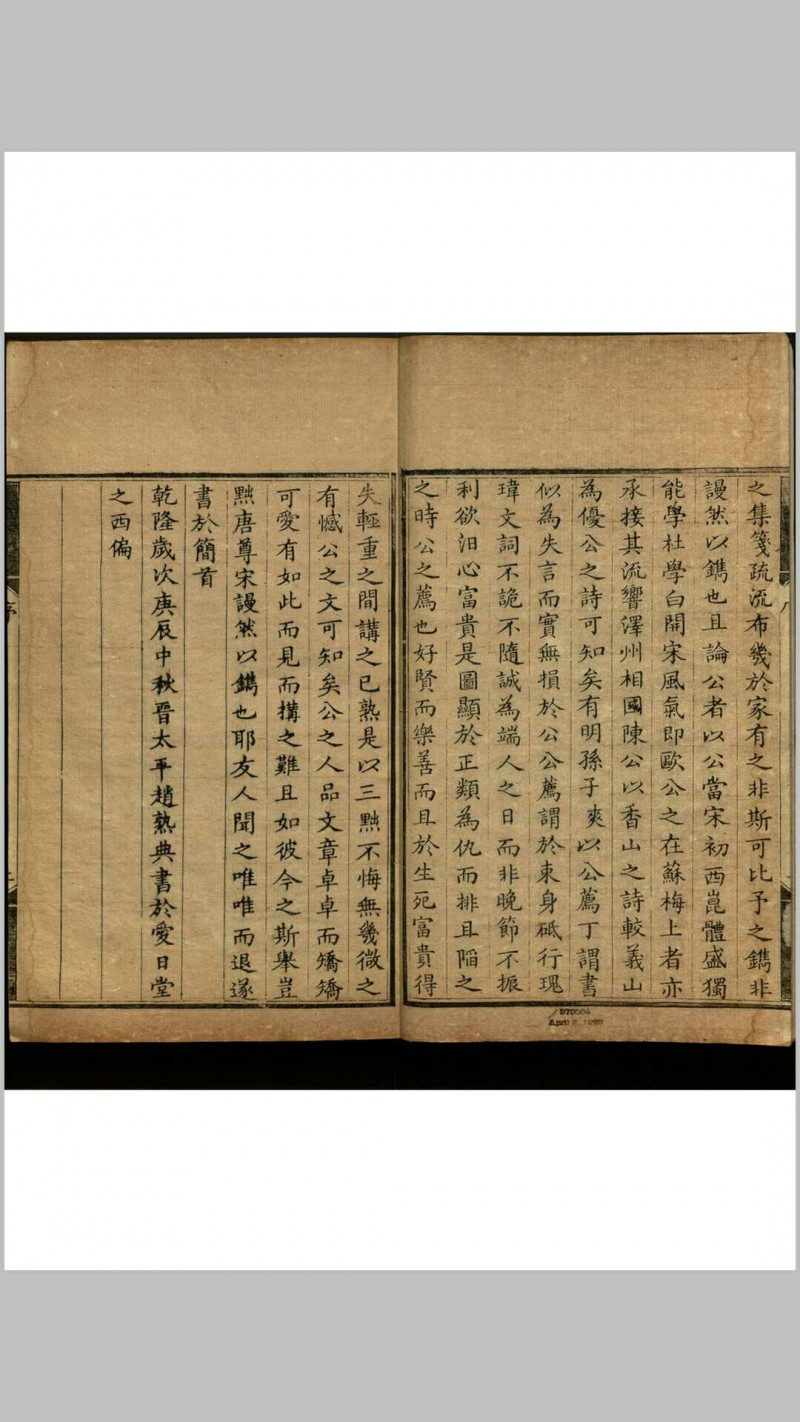 之集箋疏流布幾於家有之非斯可比予之鐫非
謾然以鐫也且論公者以公當宋初西崑體盛獨
能學杜學白開宋風氣即歐公之在蘇梅上者亦
承接其流響澤州相國陳公以香山之詩較義山
為優公之詩可知矣有明孫子爽以公薦丁謂書
似為失言而實無損於公公薦謂於束身砥行瑰
瑋文詞不詭不隨誠為端人之日而非晚節不振
利欲汨心富貴是圖顯於正類為仇而排且陷之
之時公之薦也好賢而樂善而且於生死富貴得
失輕重之間講之已熟是以三黜不悔無幾微之
有憾公之文可知矣公之人品文章卓卓而矯矯
可愛有如此而見而搆之難且如彼今之斯舉豈
黜唐尊宋謾然以鐫也耶友人聞之唯唯而退遂
書於簡首
乾隆歲次庚辰中秋晉太平趙熟典書於愛日堂
之西偏
序